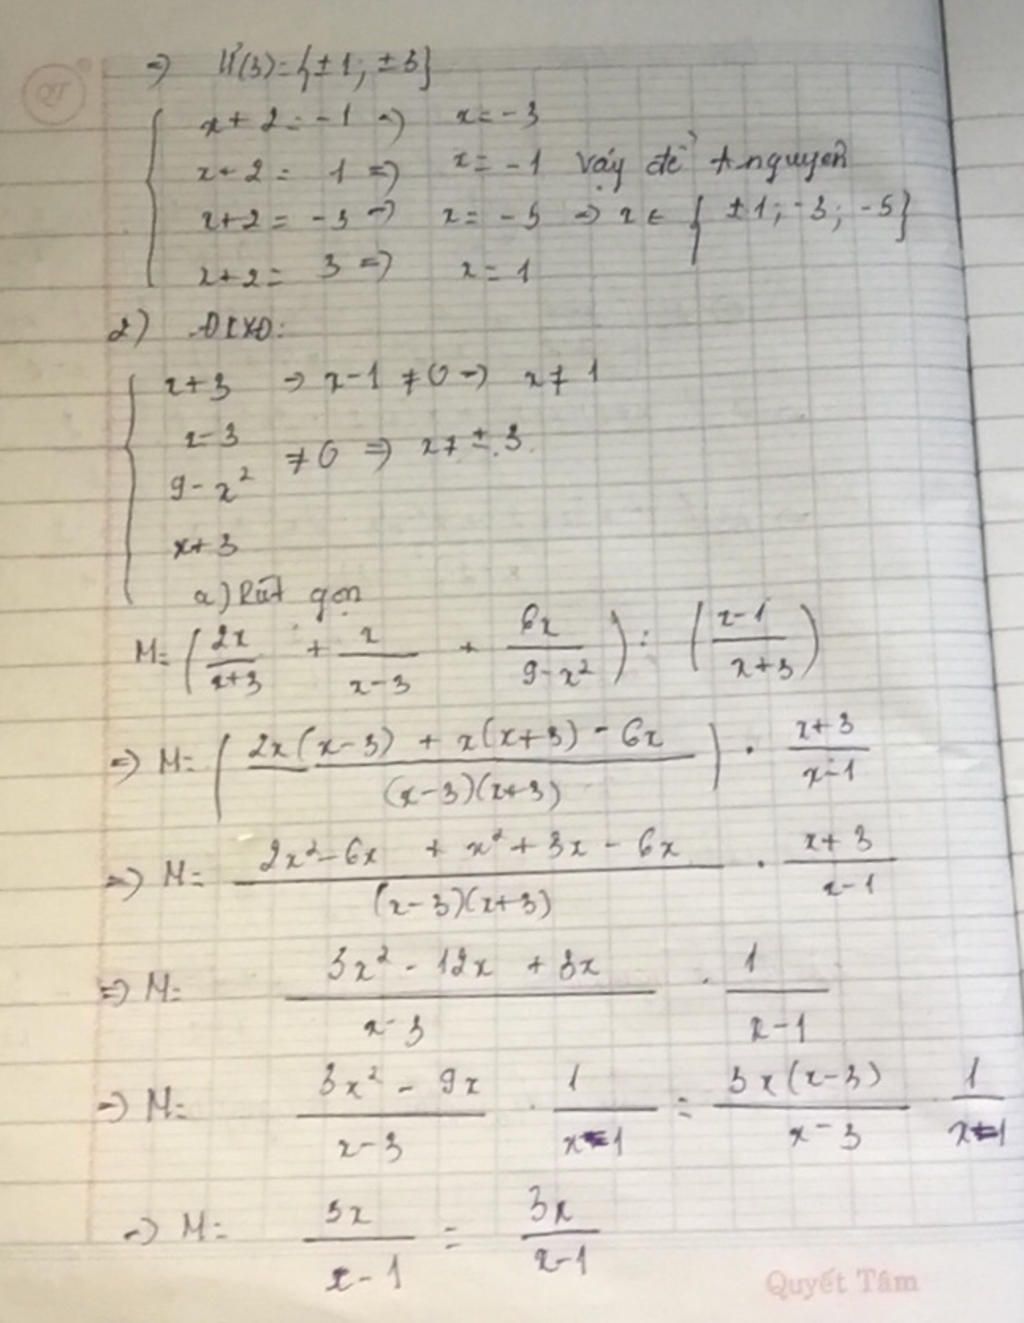 QT
=> Ư(3)={±1; ±3}
x+2=-1 => x=-3
x+2= 1 => x=-1 Vậy để A nguyên
x+2= -3 => x= -5 => x ∈ { ±1; -3; -5}
x+2= 3 => x=1
2) ĐKXĐ:
x+3 => x-1 ≠0 => x≠1
x-3
≠0 => x≠±3
9-x²
x+3
a) Rút gọn
M= (2x/(x+3) + x/(x-3) + 6x/(9-x²)) : ((x-1)/(x+3))
=> M= ((2x(x-3) + x(x+3) - 6x)/((x-3)(x+3))) . (x+3)/(x-1)
=> M= (2x²-6x + x²+3x-6x)/((x-3)(x+3)) . (x+3)/(x-1)
=> M= (3x²-12x+3x)/(x-3) . 1/(x-1)
=> M= (3x²-9x)/(x-3) . 1/(x-1) = (3x(x-3))/(x-3) . 1/(x-1)
=> M= 3x/(x-1) = 3x/(x-1)
Quyết Tâm